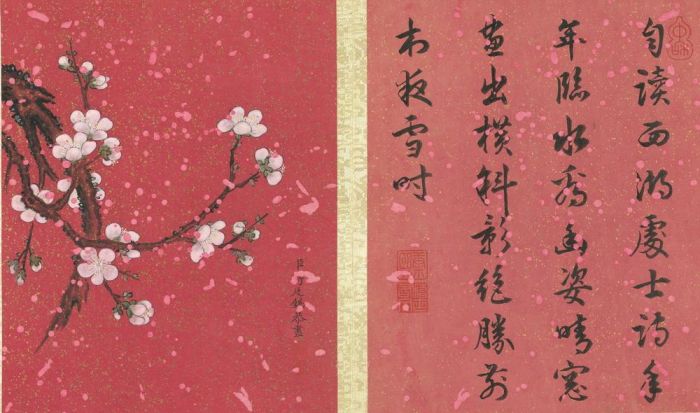 自讀西湖處士詩年
年臨水看幽姿晴窓
畫出橫斜影絕勝前
村夜雪時
恭畫